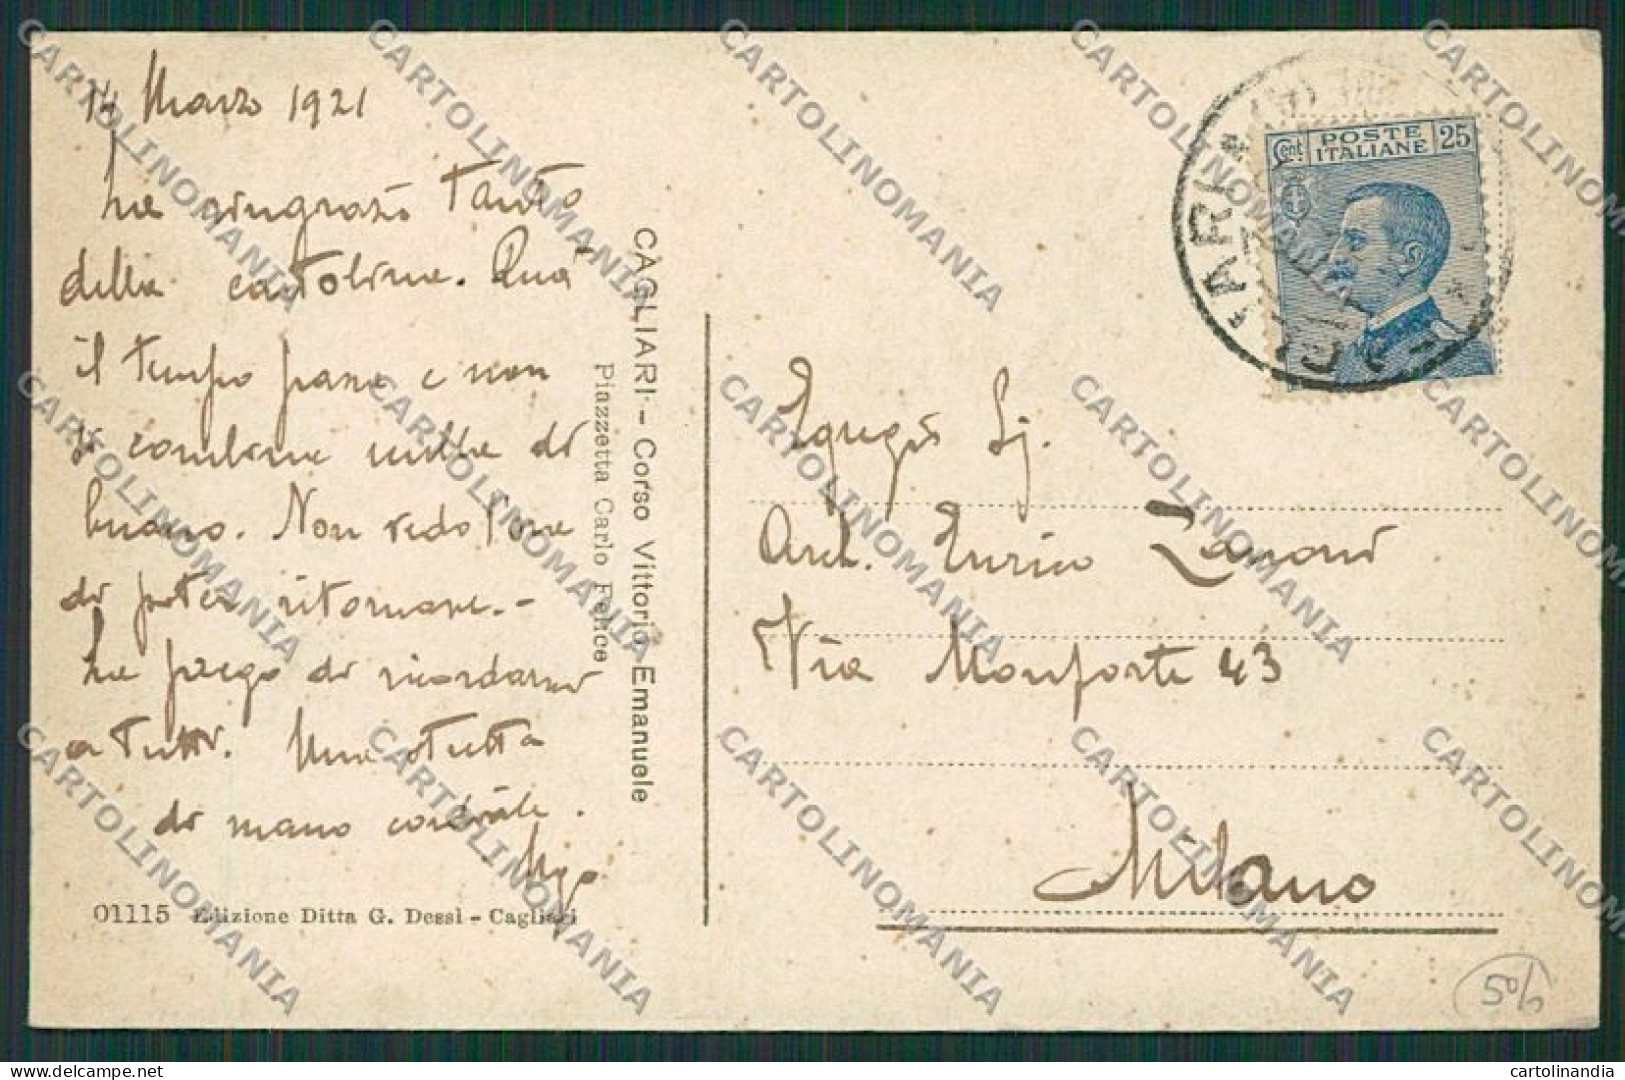 14 Marzo 1921
La ringrazio tanto
della cartolina. Qua
il tempo passa e non
si combina nulla di
buono. Non vedo l'ora
di poter ritornare.-
La prego di ricordarmi
a tutti. Una stretta
di mano cordiale.
Ugo
01115 Edizione Ditta G. Dessì - Cagliari
CAGLIARI - Corso Vittorio Emanuele
Piazzetta Carlo Felice
Cent. POSTE ITALIANE 25
Egregio Sig.
Arch. Enrico Zanoni
Via Monforte 43
Milano
CARTOLINOMANIA
cartolinandia